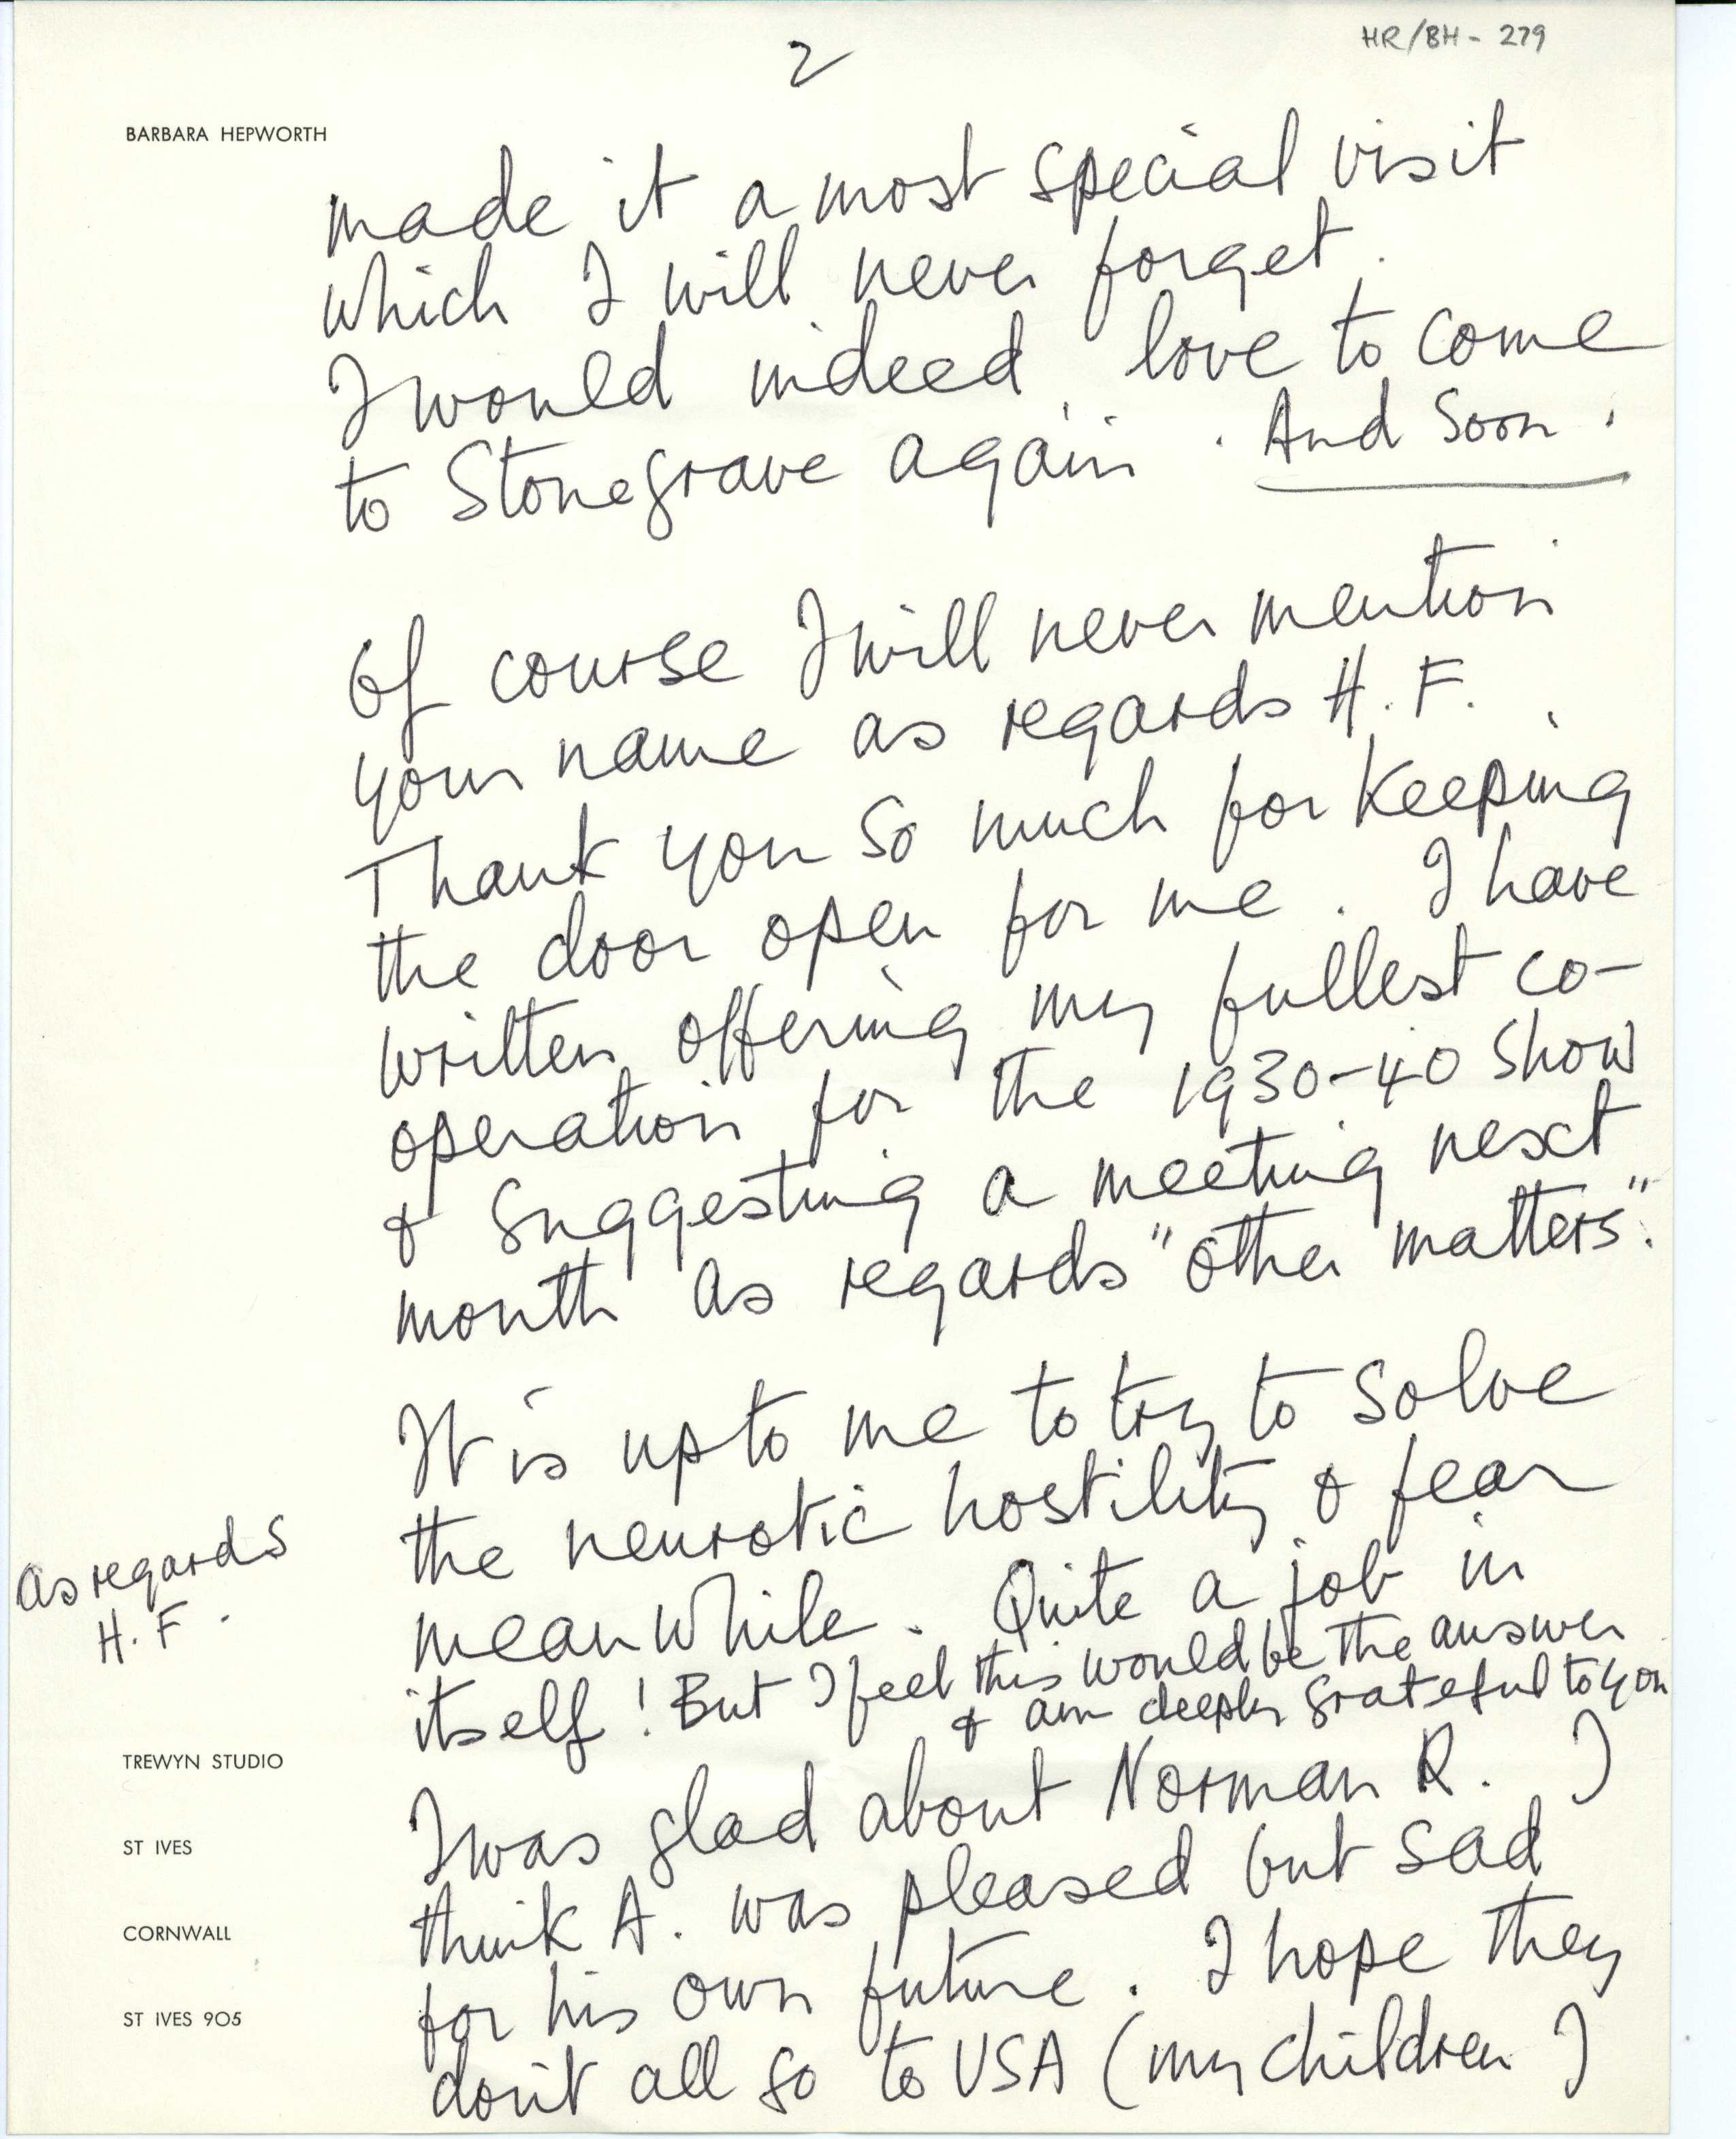 2
HR/BH - 279
BARBARA HEPWORTH
made it a most special visit
which I will never forget.
I would indeed love to come
to Stonegrave again. And Soon.
Of course I will never mention
your name as regards H. F.
Thank you so much for keeping
the door open for me. I have
written offering my fullest co-
operation for the 1930-40 Show
& suggesting a meeting next
month as regards "other matters".
It is up to me to try to solve
the neurotic hostility & fear
as regards
H. F.
meanwhile. Quite a job in
itself! But I feel this would be the answer
& am deeply grateful to you
TREWYN STUDIO
I was glad about Norman R. I
ST IVES
think A. was pleased but sad
CORNWALL
for his own future. I hope they
ST IVES 905
don't all go to USA (my children I